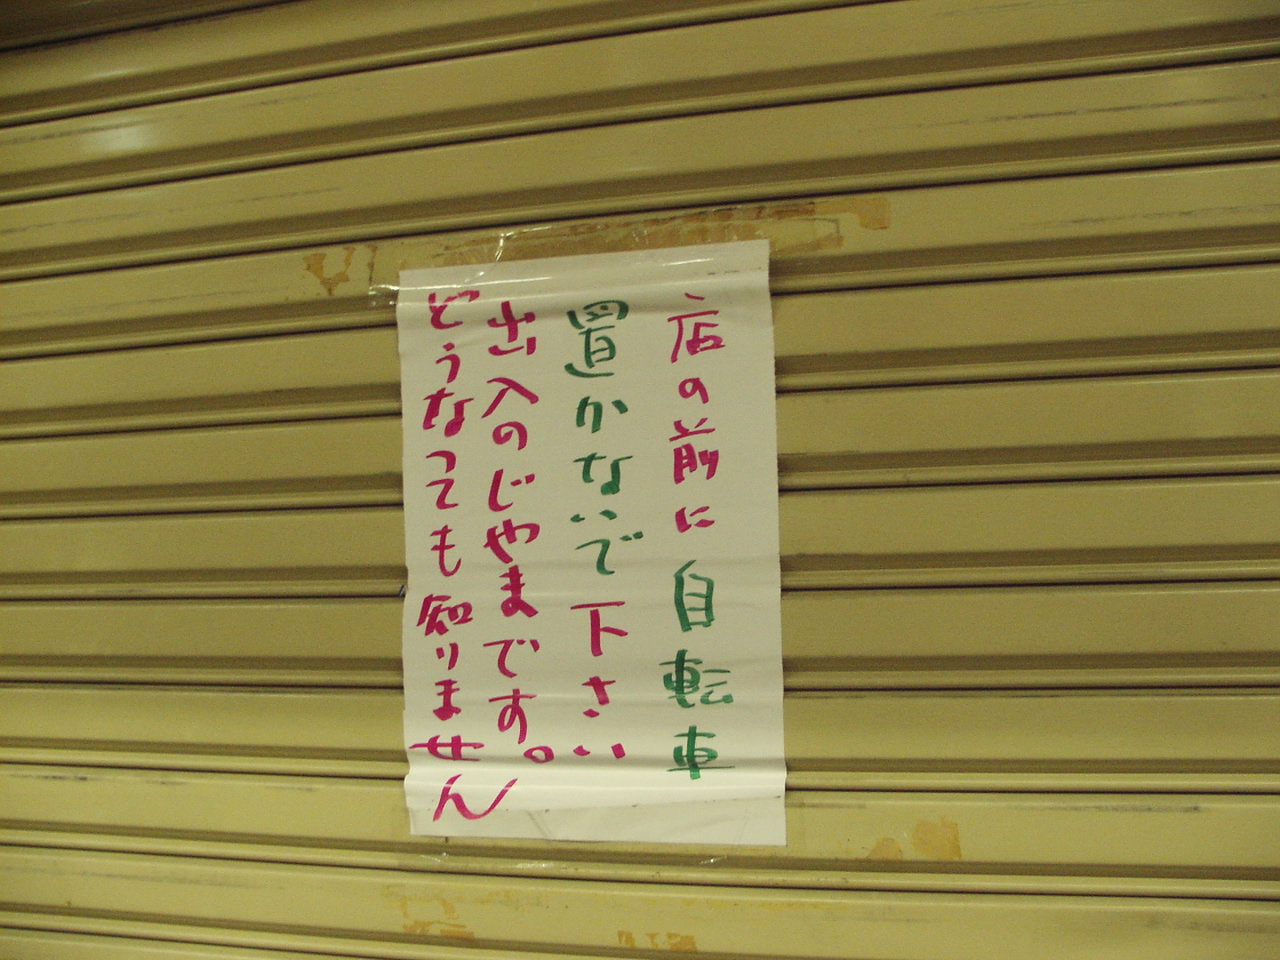 店の前に自転車
置かないで下さい
出入のじやまです。
どうなっても知りません